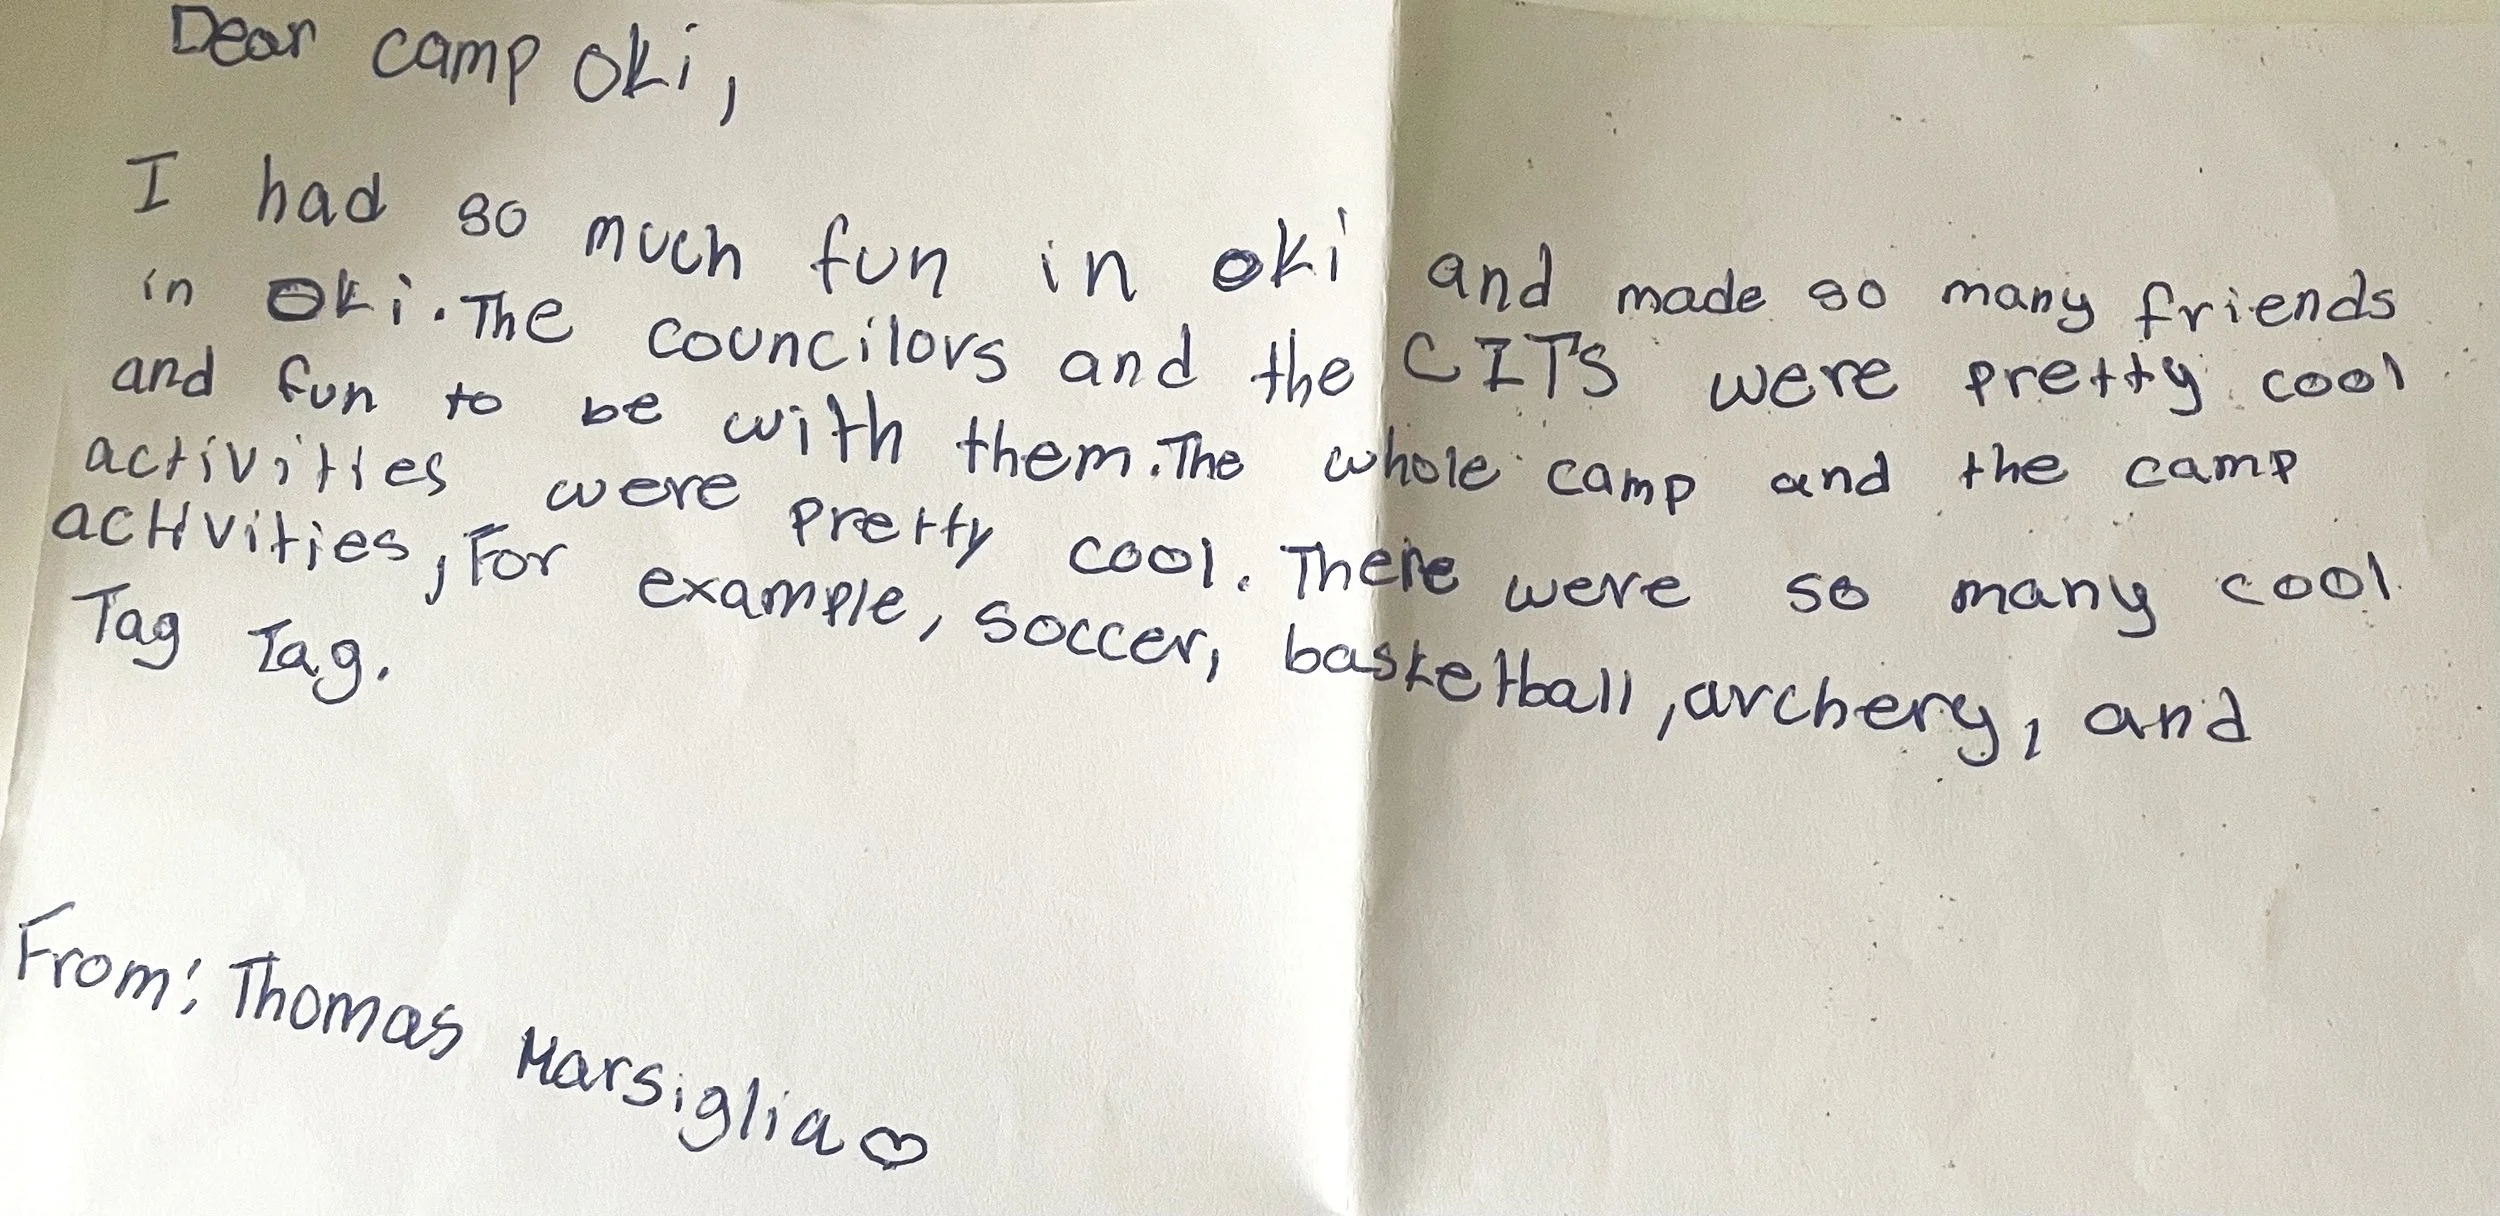 Dear camp Oki,
I had so much fun in oki and made so many friends
in Oki. The councilors and the CITS were pretty cool
and fun to be with them. The whole camp and the camp
activities were pretty cool. There were so many cool
activities, For example, soccer, basketball, archery, and
Tag Tag.
From: Thomas Marsiglia ♡